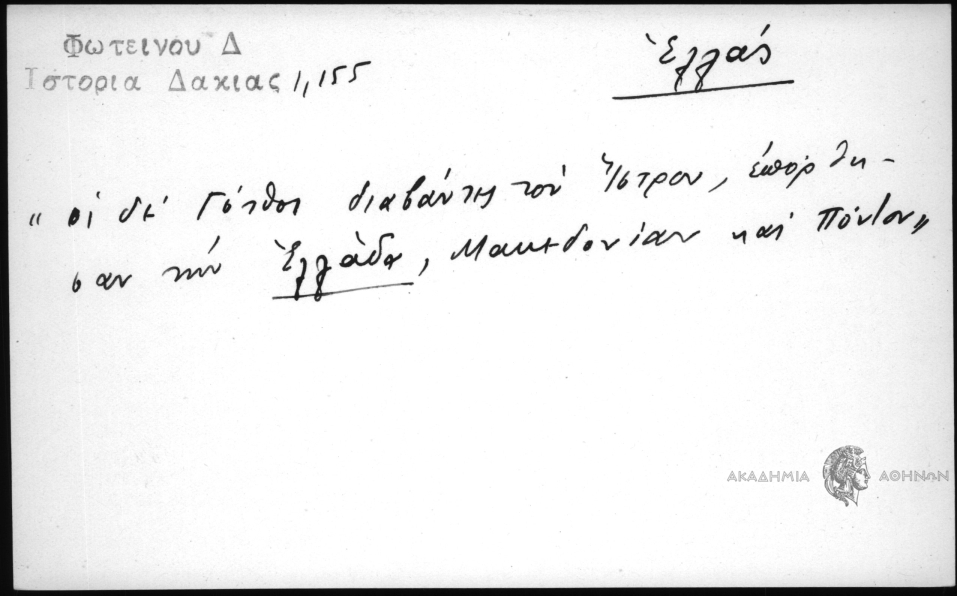 Φωτεινου Δ
Ιστορια Δακιας 1,155
Ἑλλάς
“ οἱ δὲ Γότθοι διαβάντες τὸν Ἴστρον, ἐπόρθη-
σαν τὴν Ἑλλάδα, Μακεδονίαν καὶ Πόντον”
ΑΚΑΔΗΜΙΑ ΑΘΗΝΩΝ